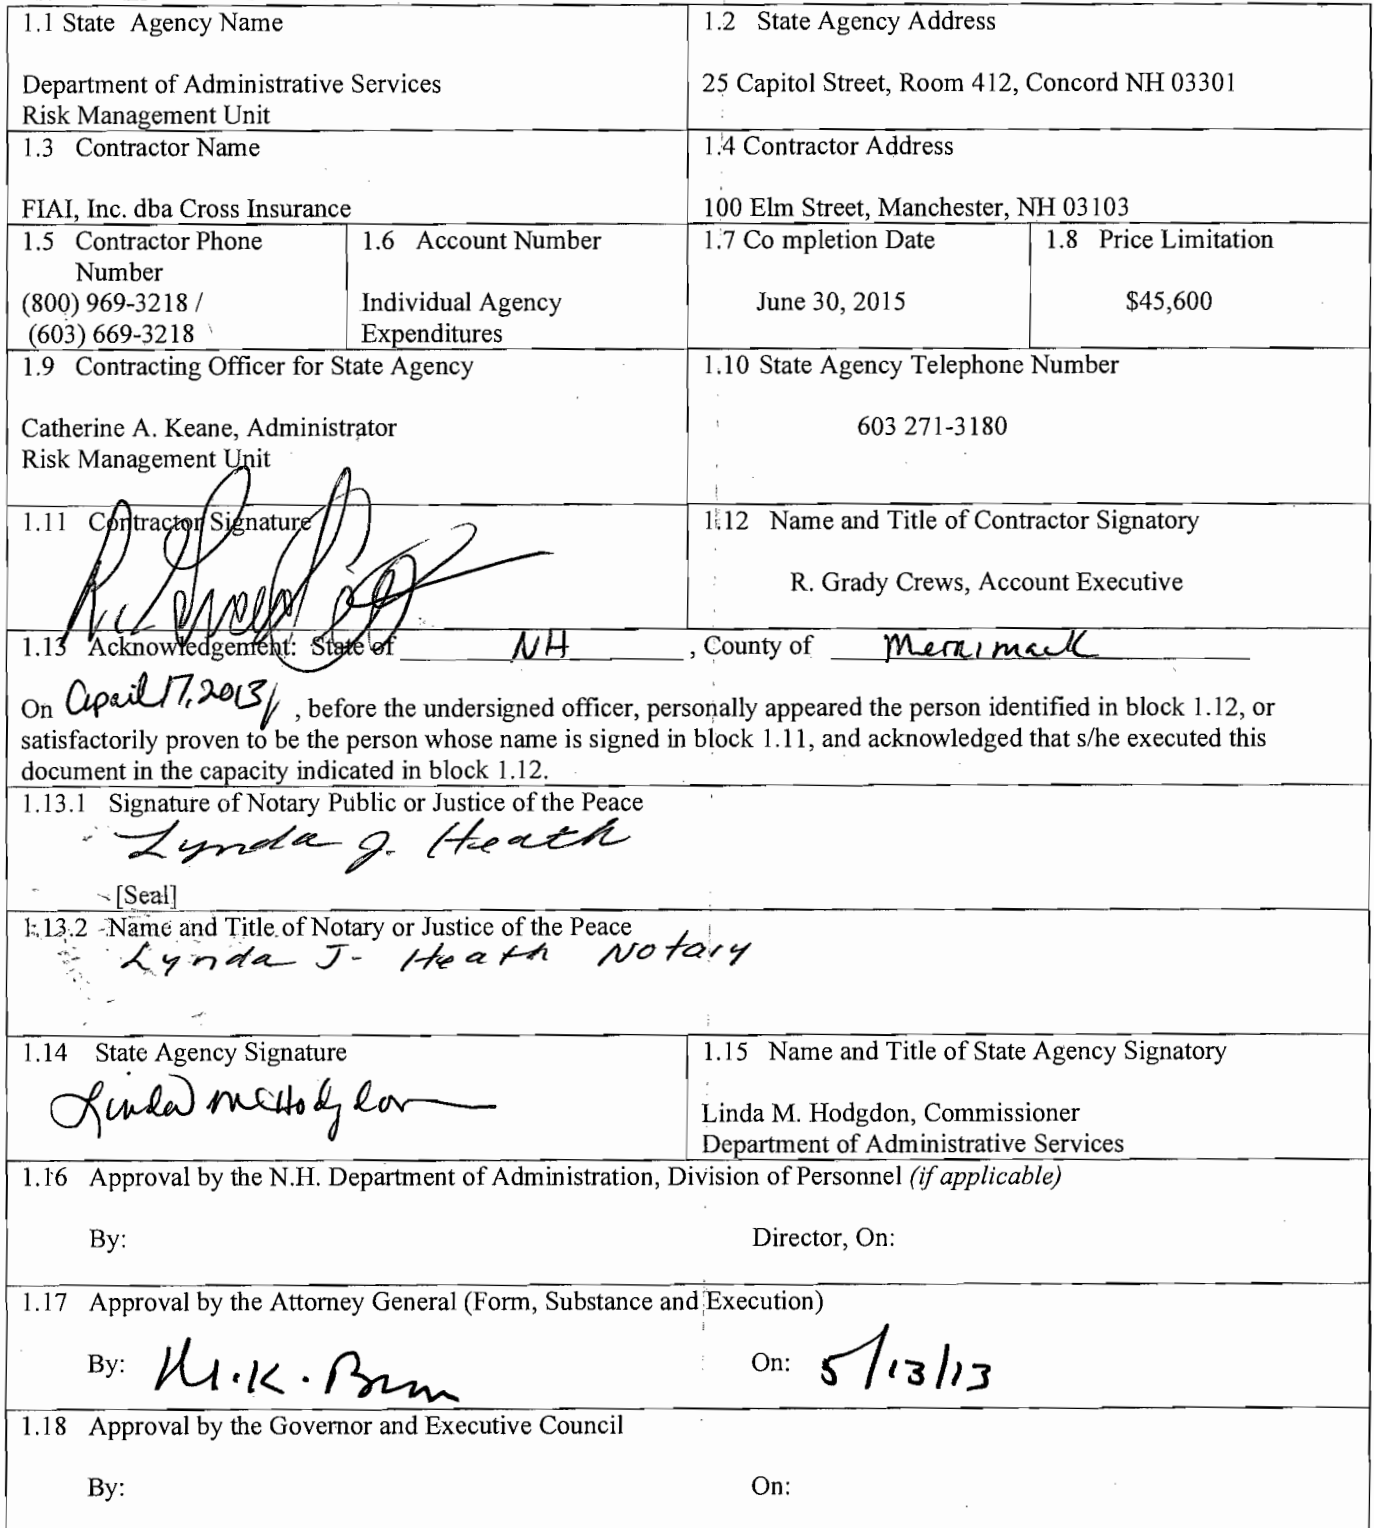 1.1 State Agency Name
Department of Administrative Services
Risk Management Unit
1.2 State Agency Address
25 Capitol Street, Room 412, Concord NH 03301
1.3 Contractor Name
FIAI, Inc. dba Cross Insurance
1.4 Contractor Address
100 Elm Street, Manchester, NH 03103
1.5 Contractor Phone
Number
(800) 969-3218 /
(603) 669-3218
1.6 Account Number
Individual Agency
Expenditures
1.7 Co mpletion Date
June 30, 2015
1.8 Price Limitation
$45,600
1.9 Contracting Officer for State Agency
Catherine A. Keane, Administrator
Risk Management Unit
1.10 State Agency Telephone Number
603 271-3180
1.11 Contractor Signature
1.12 Name and Title of Contractor Signatory
R. Grady Crews, Account Executive
1.13 Acknowledgement: State of NH, County of Merrimack
On April 17, 2013, before the undersigned officer, personally appeared the person identified in block 1.12, or
satisfactorily proven to be the person whose name is signed in block 1.11, and acknowledged that s/he executed this
document in the capacity indicated in block 1.12.
1.13.1 Signature of Notary Public or Justice of the Peace
Lynda J. Heath
[Seal]
1.13.2 Name and Title of Notary or Justice of the Peace
Lynda J- Heath Notary
1.14 State Agency Signature
Linda M Hodgdon
1.15 Name and Title of State Agency Signatory
Linda M. Hodgdon, Commissioner
Department of Administrative Services
1.16 Approval by the N.H. Department of Administration, Division of Personnel (if applicable)
By: Director, On:
1.17 Approval by the Attorney General (Form, Substance and Execution)
By: M.K. On: 5/13/13
1.18 Approval by the Governor and Executive Council
By: On: